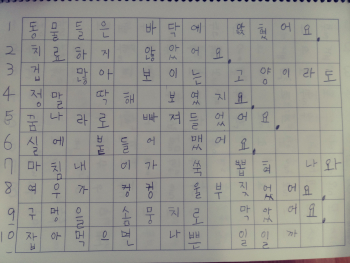 1 동물들은 바닥에 막혔어요.
2 치료하지 않았어요.
3 겁 많아 보이는 고양이라도
4 정말 딱해 보였지요.
5 꿈나라로 빠져들었어요.
6 실에 붙들어 맸어요.
7 마침내 이가 쑥 뽑혀 나와
8 여우가 컹컹 울부짖었어요.
9 구멍을 솜뭉치로 막았어요.
10 잡아먹으면 나쁜 일일까